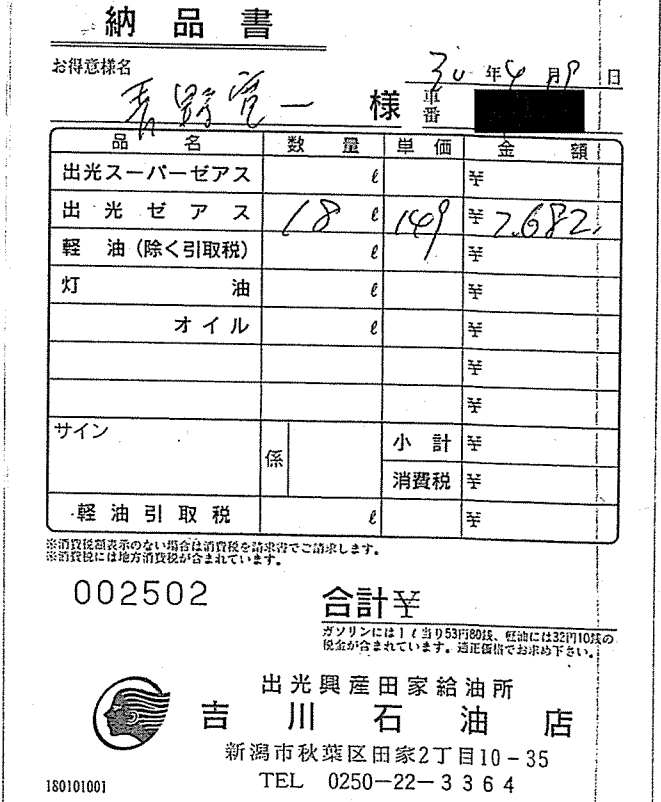 納品書
お得意様名
青野寛一 様
30年4月9日
車番
品名 数量 単価 金額
出光スーパーゼアス ℓ ¥
出光ゼアス 18 ℓ 149 ¥2,682
軽油(除く引取税) ℓ ¥
灯油 ℓ ¥
オイル ℓ ¥
¥
¥
サイン 係 小計 ¥
消費税 ¥
軽油引取税 ℓ ¥
※消費税額表示のない場合は消費税を請求書でご請求します。
※消費税には地方消費税が含まれています。
002502
合計¥
ガソリンには1ℓ当り53円80銭、軽油には32円10銭の
税金が含まれています。適正価格でお求め下さい。
出光興産田家給油所
吉川石油店
新潟市秋葉区田家2丁目10-35
TEL 0250-22-3364
180101001